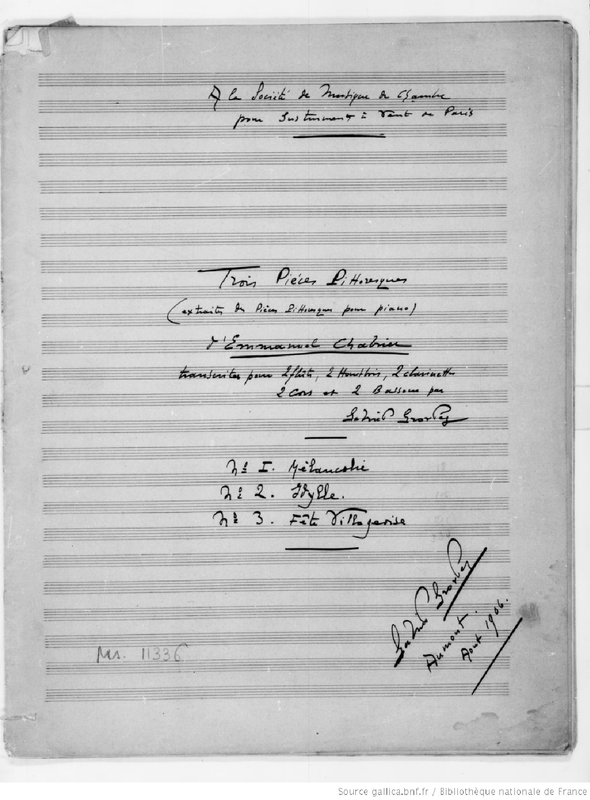 A la Société de Musique de Chambre
pour Instruments à Vent de Paris
Trois Pièces Pittoresques
(extraites des Pièces Pittoresques pour piano)
d'Emmanuel Chabrier
transcrites pour 2 flûtes, 2 Hautbois, 2 clarinettes
2 Cors et 2 Bassons par
Gabriel Grovlez
No I. Mélancolie
No 2. Idylle.
No 3. Fête Villageoise
Gabriel Grovlez
Aumont.
Aout 1906.
Ms. 11336
Source gallica.bnf.fr / Bibliothèque nationale de France